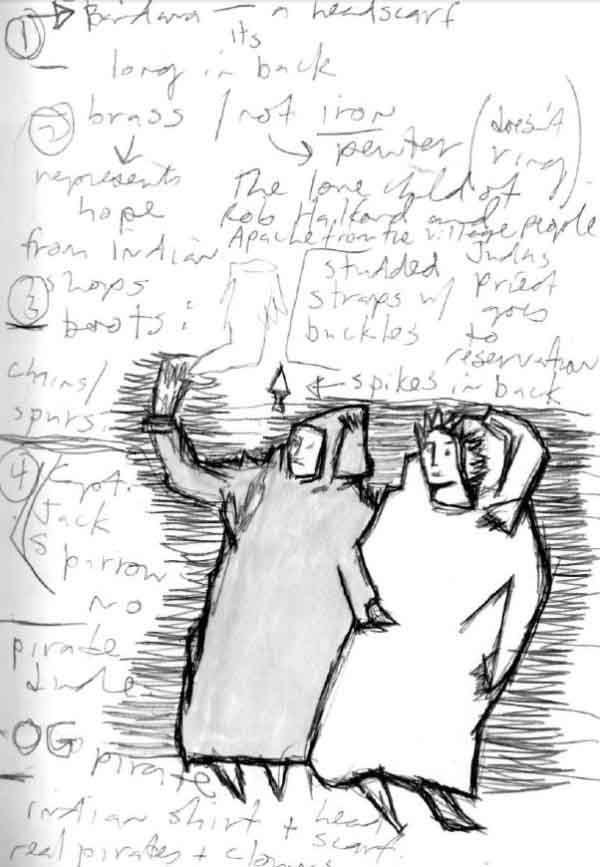 ① → Bandana — a headscarf
its
long in back
② brass / not iron
pewter (doesn't ring)
represents
hope
from indian
shops
The love child of
Rob Halford and
Apache from the village people
③ boots:
studded
straps w/
buckles
Judas
Priest
goes
to
reservation
chains/
spurs
← spikes in back
④ Capt.
Jack
Sparrow
NO
pirate
dude
OG
pirate
indian shirt + head
scarf
real pirates +